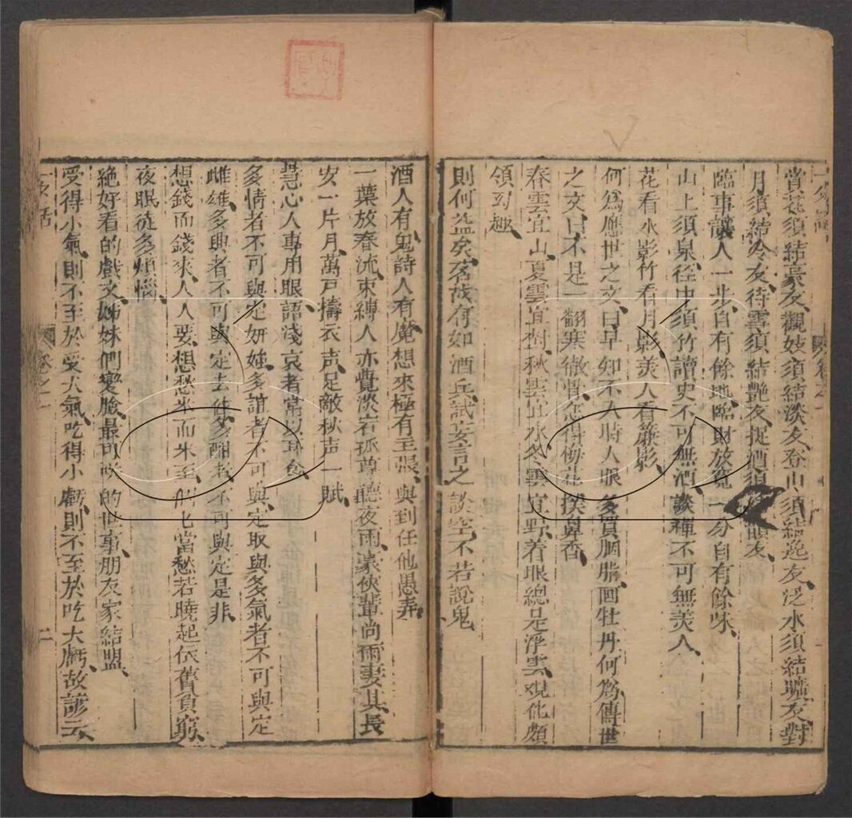 賞花須結豪友觀妓須結淡友登山須結逸友泛水須結曠友對
月須結冷友待雪須結艷友捉酒須結韻友
臨事讓人一步自有餘地臨財放寬一分自有餘味
山上須泉徑中須竹讀史不可無酒談禪不可無美人
花看水影竹看月影美人看簾影
何為應世之文曰早知不入時人眼多買胭脂畫牡丹何為傳世
之文曰不是一翻寒徹骨怎得梅花撲鼻香
春雲宜山夏雲宜樹秋雲宜水冬雲宜野着眼總是浮雲觀化頗
領到趣
則何益矣茗戰有如酒兵試妄言之談空不若說鬼
酒人有鬼詩人有魔想來極有主張與到任他愚弄
一葉放春流束縛人亦覺淡若孤尊聽夜雨豪俠輩尚爾妻其長
安一片月萬戸擣衣声足敵秋声一賦
慧心人專用眼語淺衷者常以耳食
多情者不可與定妍媸多誼者不可與定取與多氣者不可與定
雌雄多興者不可與定去住多酣者不可與定是非
想錢而錢來人人要想愁米而米至
當愁若曉起依舊貧窮
夜眠徒多煩惱
絶好看的戲文姊妹們變臉最可咲的世事朋友家結盟
受得小氣則不至於受大氣吃得小虧則不至於吃大虧故諺云
二